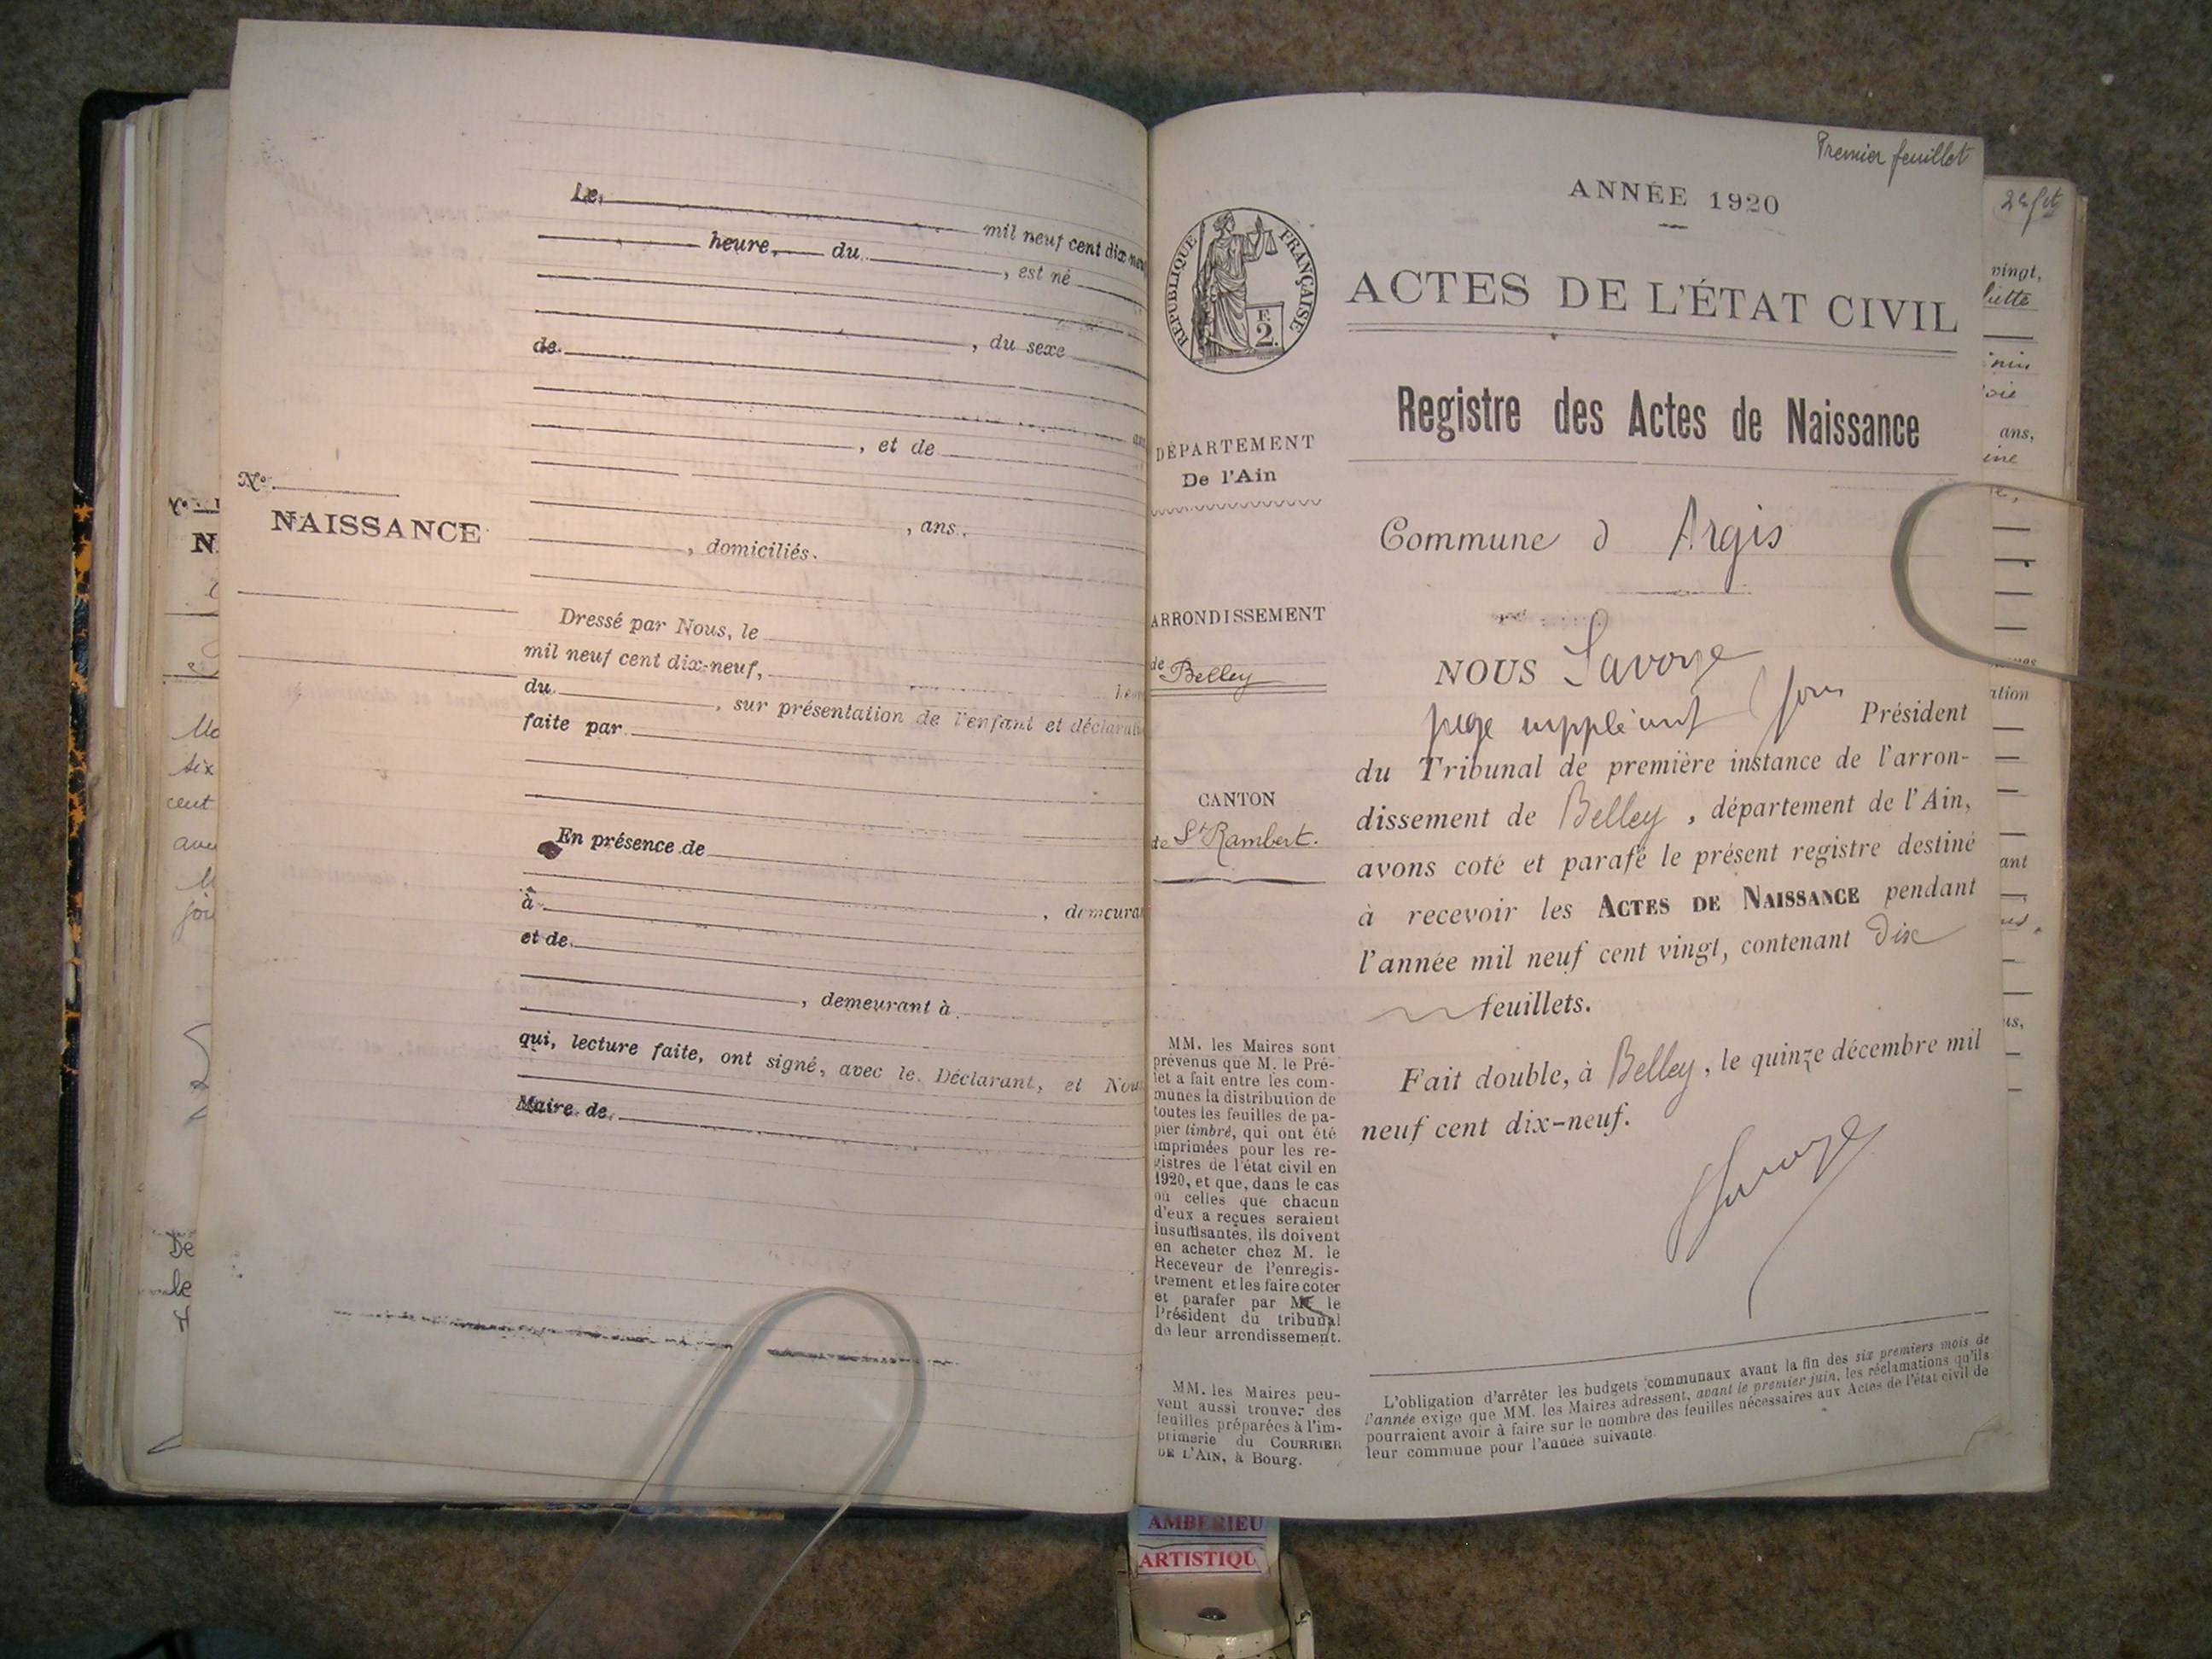 Le, mil neuf cent dix-neu
heure, du , est né
de , du sexe
, et de
, ans,
, domiciliés.
N°
NAISSANCE
Dressé par Nous, le
mil neuf cent dix-neuf,
du , sur présentation de l'enfant et déclarati
faite par
En présence de
à , demeura
et de
, demeurant à
qui, lecture faite, ont signé, avec le Déclarant, et Nou
Maire de
Premier feuillet
ANNÉE 1920
RÉPUBLIQUE FRANÇAISE
F.
2.
ACTES DE L'ÉTAT CIVIL
Registre des Actes de Naissance
DÉPARTEMENT
De l'Ain
Commune d Argis
ARRONDISSEMENT
de Belley
CANTON
de St Rambert.
NOUS Savoye
juge suppléant Président
du Tribunal de première instance de l'arron-
dissement de Belley, département de l'Ain,
avons coté et parafé le présent registre destiné
à recevoir les ACTES DE NAISSANCE pendant
l'année mil neuf cent vingt, contenant Dix
feuillets.
Fait double, à Belley, le quinze décembre mil
neuf cent dix-neuf.
MM. les Maires sont
prévenus que M. le Pré-
fet a fait entre les com-
munes la distribution de
toutes les feuilles de pa-
pier timbré, qui ont été
imprimées pour les re-
gistres de l'état civil en
1920, et que, dans le cas
où celles que chacun
d'eux a reçues seraient
insuffisantes, ils doivent
en acheter chez M. le
Receveur de l'enregis-
trement et les faire coter
et parafer par M. le
Président du tribunal
de leur arrondissement.
MM. les Maires peu-
vent aussi trouver des
feuilles préparées à l'im-
primerie du COURRIER
DE L'AIN, à Bourg.
L'obligation d'arrêter les budgets communaux avant la fin des six premiers mois de
l'année exige que MM. les Maires adressent, avant le premier juin, les réclamations qu'ils
pourraient avoir à faire sur le nombre des feuilles nécessaires aux Actes de l'état civil de
leur commune pour l'année suivante.
vingt,
ans,
ation
ant
AMBERIEU
ARTISTIQU